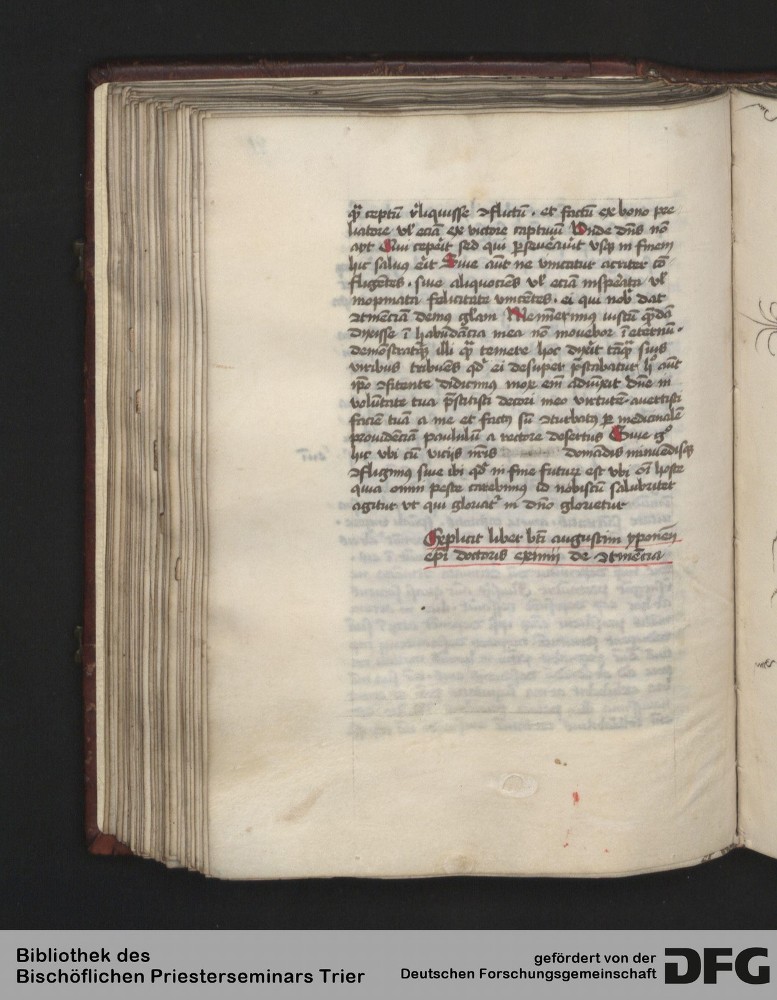 qͣ ceptū r̄liquisse ꝯflictū . et factū ex bono pre
liatore vl̓ eciā ex victore captiuū Unde dn̄s nō
ayt Qui cepit̄ sed qui ꝑseuerauit̄ vsqꝫ in finem
hic saluꝰ erit̄ Siue aut̄ ne vincatur acriter cō
fligētes . siue aliquociēs vl̓ eciā inspērata vl̓
inopinata felicitate vincētes . ei qui nob̄ dat
ꝯtinēciā demꝰ gl̓am Meminerimꝰ iustū quēdā
dixisse ī habūdācia mea nō mouebor ī eternū .
demōstratūqꝫ illi qͣ temere hoc dixit̄ tāqͣ suis
viribus tribuēs qd̓ ei desuper p̄stabatur h̓ aut̄
ip̄o ꝯfitente didicimus mox em̄ adiūxit dn̄e in
volūtate tua p̄stitisti decori meo virtutē auertisti
faciē tuā a me et factꝰ sū ꝯturbatꝰ ꝑ medicinalē
prouidēciā paululū a rectore desertus Siue gͦ
hic vbi cū viciis nr̄is domādis minuēdisqꝫ
ꝯfligimꝰ siue ibi qd̓ in fine futuꝝ est vbi oī hoste
quia omni peste carebimus id nobiscū salubriter
agitur vt qui gloriatᷣ in dn̄o glorietur
Explicit liber bt̄i augustini yponen̄
epī doctoris eximij de ꝯtinēcia
Bibliothek des
Bischöflichen Priesterseminars Trier
gefördert von der
Deutschen Forschungsgemeinschaft
DFG